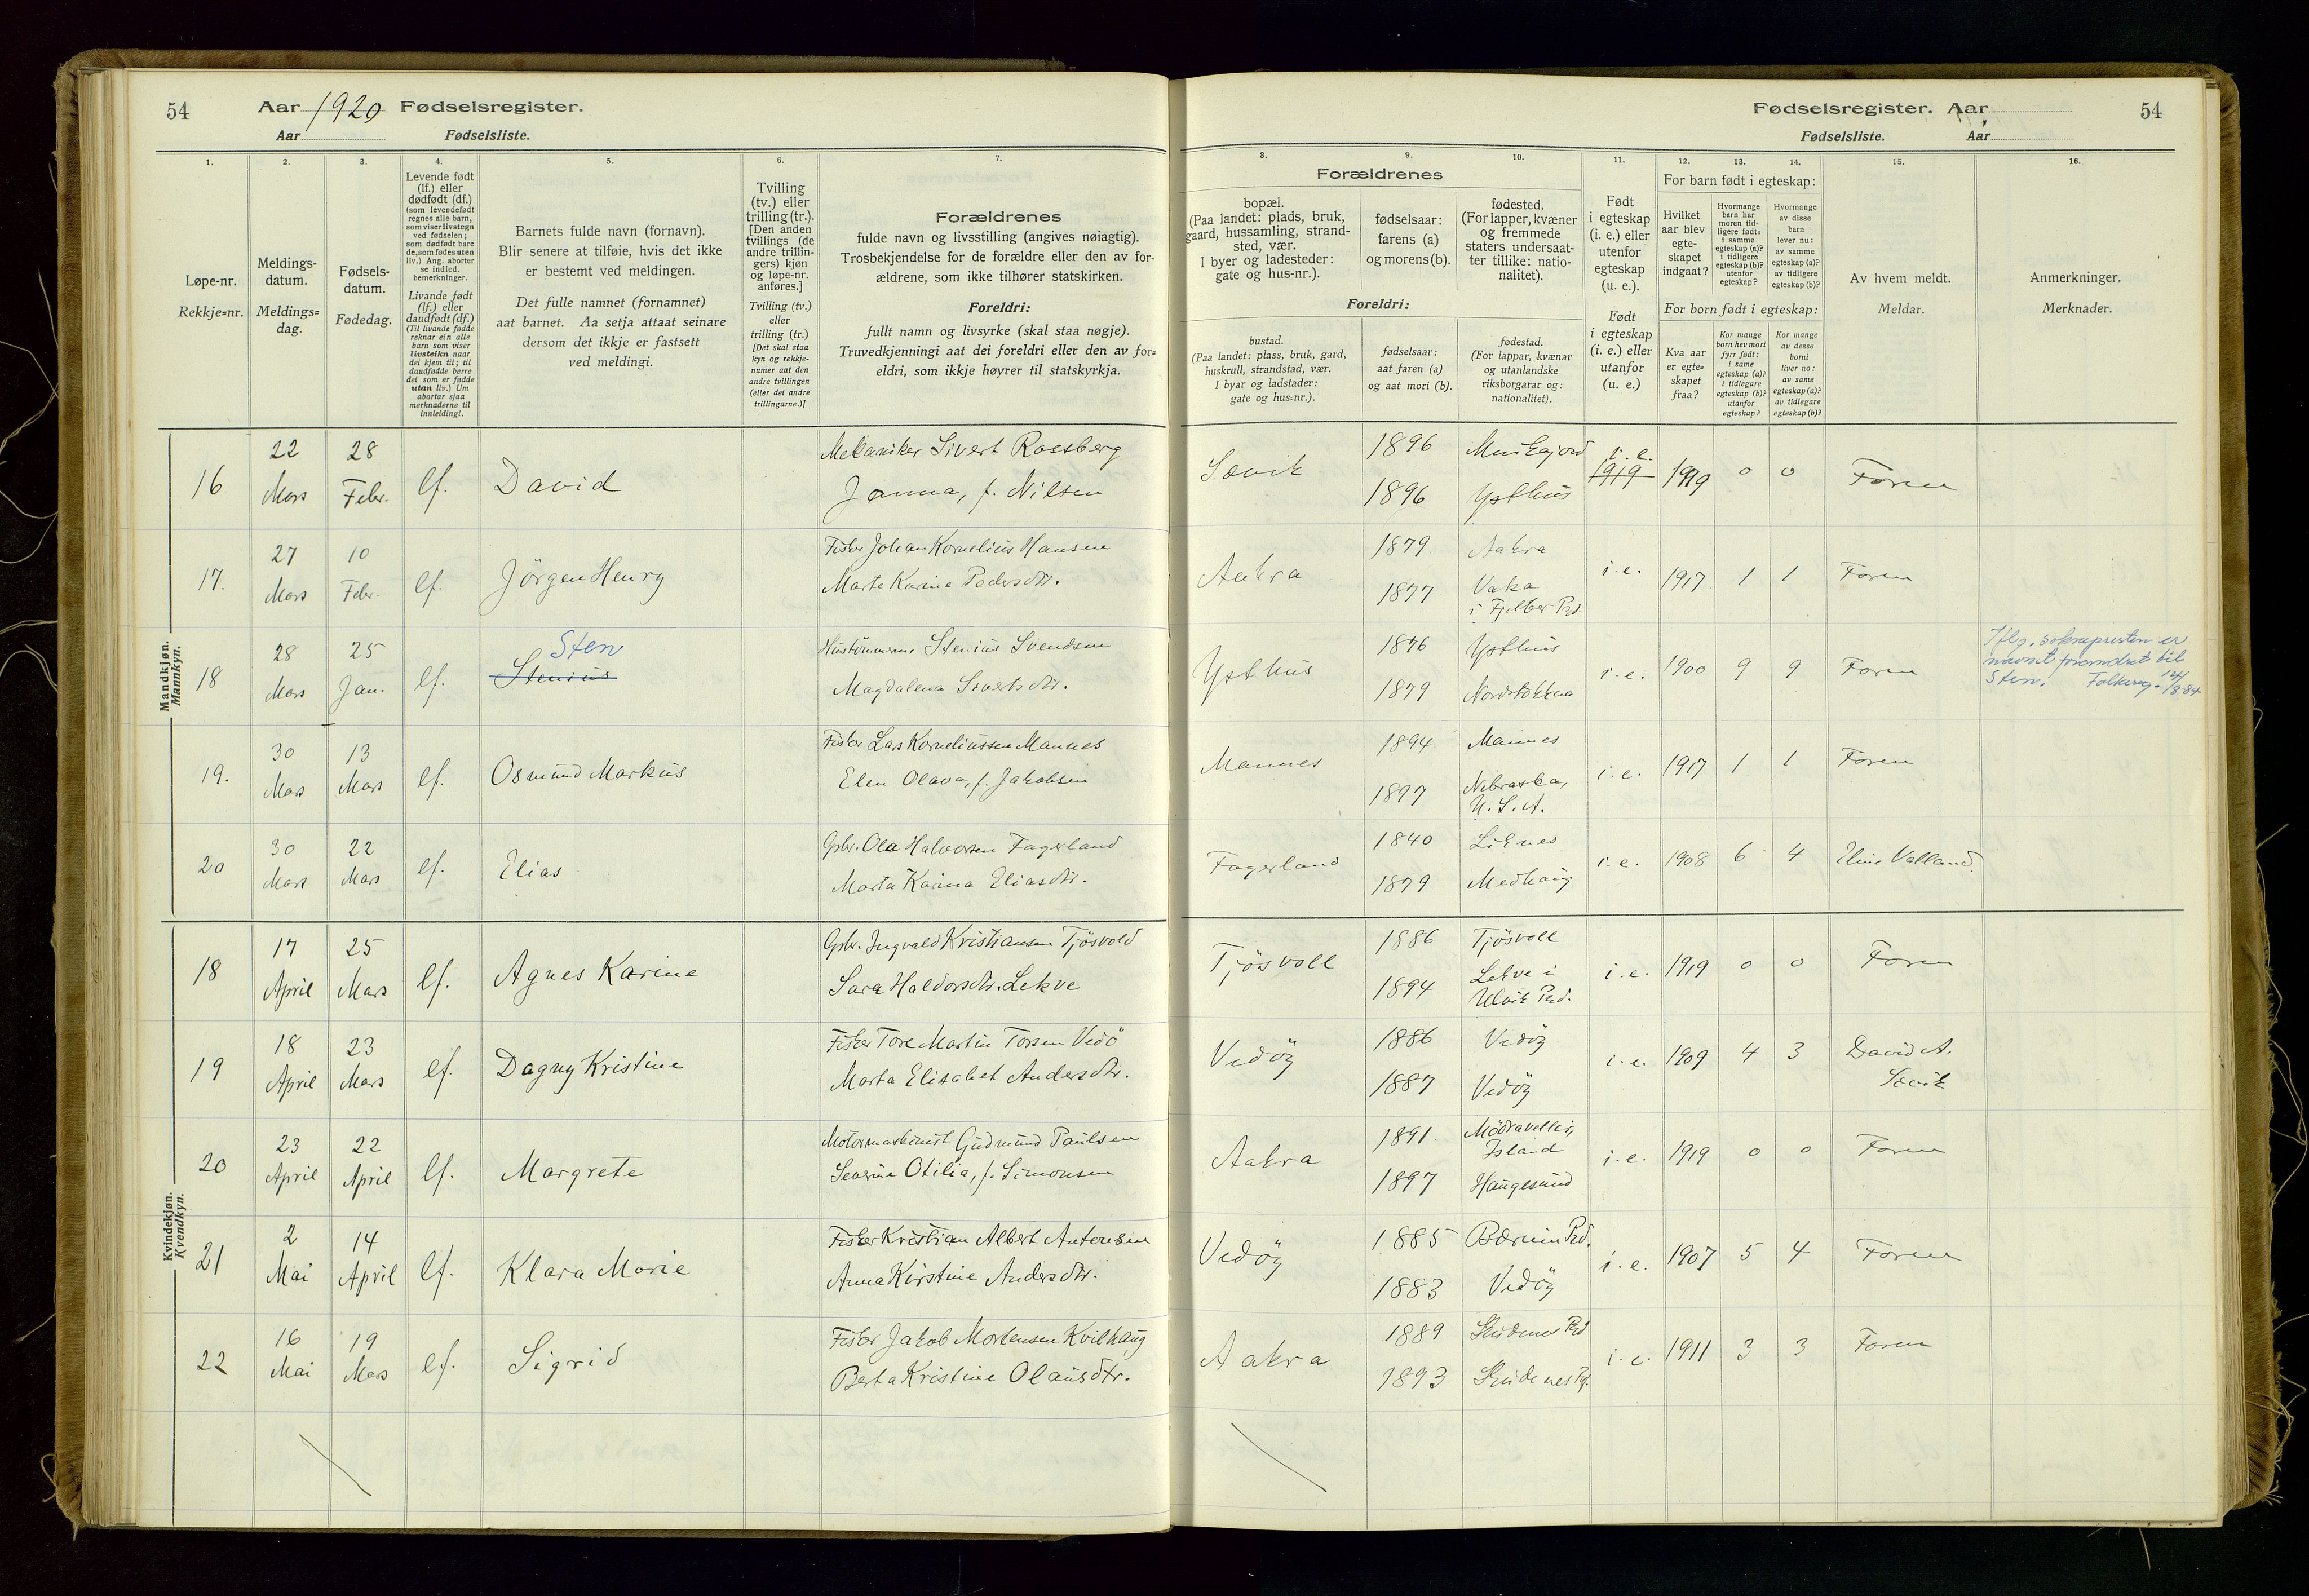 54 Aar 1920 Fødselsregister.
Aar Fødselsliste.
Fødselsregister. Aar 54
Fødselsliste. Aar
1. 2. 3. 4. 5. 6. 7.
Løpe-nr.
Rekkje=nr.
Meldings-
datum.
Meldings=
dag.
Fødsels-
datum.
Fødedag.
Levende født
(lf.) eller
dødfødt (df.)
(som levendefødt
regnes alle barn,
som viser livstegn
ved fødselen;
som dødfødt bare
de, som fødes uten
liv.) Ang. aborter
se indled.
bemerkninger.
Livande født
(lf.) eller
daudfødt (df.)
(Til livande fødde
reknar ein alle
barn som viser
livsteikn naar
dei kjem til; til
daudfødde berre
dei som er fødde
utan liv.) Um
abortar sjaa
merknaderne til
innleidingi.
Barnets fulde navn (fornavn).
Blir senere at tilføie, hvis det ikke
er bestemt ved meldingen.
Det fulle namnet (fornamnet)
aat barnet. Aa setja attaat seinare
dersom det ikkje er fastsett
ved meldingi.
Tvilling
(tv.) eller
trilling (tr.).
[Den anden
tvillings (de
andre trillin-
gers) kjøn
og løpe-nr.
anføres.]
Tvilling (tv.)
eller
trilling (tr.)
[Det skal staa
kyn og rekkje-
numer aat den
andre tvillingen
(eller dei andre
trillingarne.)]
Forældrenes
fulde navn og livsstilling (angives nøiagtig).
Trosbekjendelse for de forældre eller den av for-
ældrene, som ikke tilhører statskirken.
Foreldri:
fullt namn og livsyrke (skal staa nøgje).
Truvedkjenningi aat dei foreldri eller den av for=
eldri, som ikkje høyrer til statskyrkja.
8. 9. 10. 11. 12. 13. 14. 15. 16.
Forældrenes
bopæl.
(Paa landet: plads, bruk,
gaard, hussamling, strand-
sted, vær.
I byer og ladesteder:
gate og hus-nr.).
fødselsaar:
farens (a)
og morens (b).
fødested.
(For lapper, kvæner
og fremmede
staters undersaat-
ter tillike: natio-
nalitet).
Foreldri:
bustad.
(Paa landet: plass, bruk, gard,
huskrull, strandstad, vær.
I byar og ladstader:
gate og hus=nr.).
fødselsaar:
aat faren (a)
og aat mori (b).
fødestad.
(For lappar, kvænar
og utanlandske
riksborgarar og:
nationalitet).
Født
i egteskap
(i. e.) eller
utenfor
egteskap
(u. e.).
Født
i egteskap
(i. e.) eller
utanfor
(u. e.)
For barn født i egteskap:
Hvilket
aar blev
egte-
skapet
indgaat?
Hvormange
barn har
moren tid-
ligere født:
i samme
egteskap (a)?
i tidligere
egteskap (b)?
utenfor
egteskap?
Hvormange
av disse
barn
lever nu:
av samme
egteskap (a)?
av tidligere
egteskap (b)?
For born født i egteskap:
Kva aar
er egte=
skapet
fraa?
Kor mange
born hev mori
fyrr født:
i same
egteskap (a)?
i tidlegare
egteskap (b)?
utanfor
egteskap?
Kor mange
av desse
borni
liver no:
av same
egteskap (a)?
av tidlegare
egteskap (b)?
Av hvem meldt.
Meldar.
Anmerkninger.
Merknader.
Mandkjøn.
Mannkyn.
16 22 Mars 28 Febr. lf. David
Mekaniker Sivert Rossberg
Janna, f. Nilsen
Sævik 1896 1896 Ysthus i. e. 1919 1919 0 0 Faren
17. 27 Mars 10 Febr. lf. Jörgen Henry
Fisker Johan Kornelius Hansen
Marte Karine Pedersdtr.
Aakra 1879 Aakra
1877 Vaka
i Fjelber Prd.
i. e. 1917 1 1 Faren
18 28 Mars 25 Jan. lf. Sten
Stenius
Stenius Svendsen
Magdalena Sivertsdtr.
Ysthus 1876 Ysthus
1879 Nordstokkaa
i. e. 1900 9 9 Faren
Iflg. sokneprestin er
navnet forandret til
Sten. Folkereg. 14/8-84
19. 30 Mars 13 Mars lf. Osmund Markus
Fisker Lars Korneliussen Mannes
Elen Olava, f. Jakobsen
Mannes 1894 Mannes
1897 Nebraska,
U. S. A.
i. e. 1917 1 1 Faren
20 30 Mars 22 Mars lf. Elias
Gbr. Ola Halvorsen Fagerland
Marta Karina Eliasdtr.
Fagerland 1840 Liknes
1879 Medhaug
i. e. 1908 6 4 Eline Valland.
Kvindekjøn.
Kvendkyn.
18 17 April 25 Mars lf. Agnes Karine
Gbr. Ingvald Kristiansen Tjösvold
Sara Haldorsdtr. Lekve
Tjösvoll 1886 Tjösvoll
1894 Lekve i
Ulvik Prd.
i. e. 1919 0 0 Faren
19 18 April 23 Mars lf. Dagny Kristine
Fisker Tore Martin Torsen Vedö
Marta Elisabet Andersdtr.
Vedöy 1886 Vedöy
1887 Vedöy
i. e. 1909 4 3 David A.
Sævik
20 23 April 22 April lf. Margrete
Motormaskinist Gudmund Paulsen
Severine Otilia, f. Simonsen
Aakra 1891 Mödravellir,
Island
1897 Haugesund
i. e. 1919 0 0 Faren
21 2 Mai 14 April lf. Klara Marie
Fisker Kristian Albert Antonsen
Anna Kirstine Andersdtr.
Vedöy 1885 Bærum Prd.
1883 Vedöy
i. e. 1907 5 4 Faren
22 16 Mai 19 Mars lf. Sigrid
Fisker Jakob Mortensen Kvilhaug
Berta Kristine Olausdtr.
Aakra 1889 Skudenes Prd
1893 Skudenes Prd.
i. e. 1911 3 3 Faren